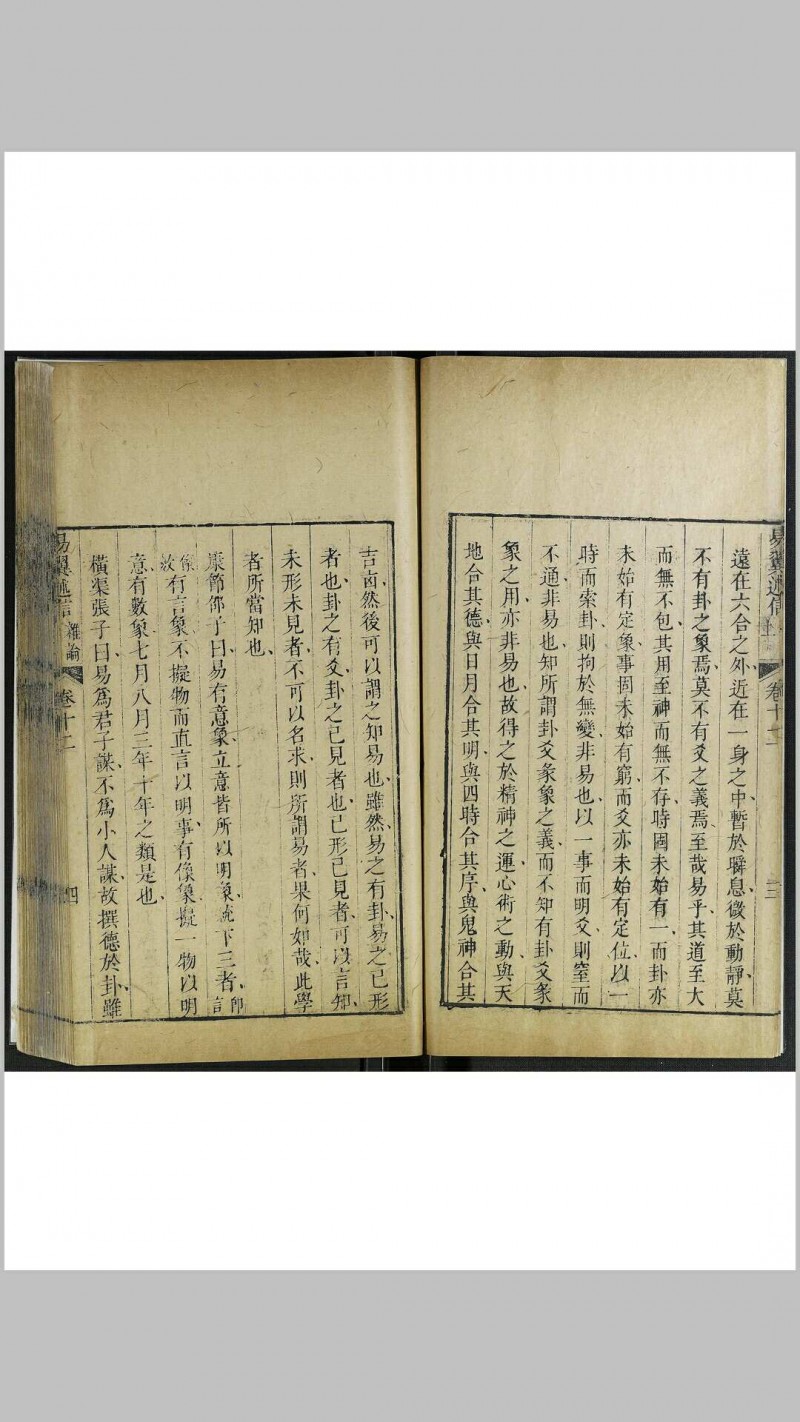 易翼述信
卷十二
三
遠在六合之外近在一身之中暫於瞬息微於動靜莫
不有卦之象焉莫不有爻之義焉至哉易乎其道至大
而無不包其用至神而無不存時固未始有一而卦亦
未始有定象事固未始有窮而爻亦未始有定位以一
時而索卦則拘於無變非易也以一事而明爻則窒而
不通非易也知所謂卦爻彖象之義而不知有卦爻彖
象之用亦非易也故得之於精神之運心術之動與天
地合其德與日月合其明與四時合其序與鬼神合其
吉凶然後可以謂之知易也雖然易之有卦易之已形
者也卦之有爻卦之已見者也已形已見者可以言知
未形未見者不可以名求則所謂易者果何如哉此學
者所當知也
康節邵子曰易有意象立意皆所以明象統下三者即言
像故有言象不擬物而直言以明事有像象擬一物以明
意有數象七月八月三年十年之類是也
橫渠張子曰易爲君子謀不爲小人謀故撰德於卦雖
易翼述信
雜論
卷十二
四